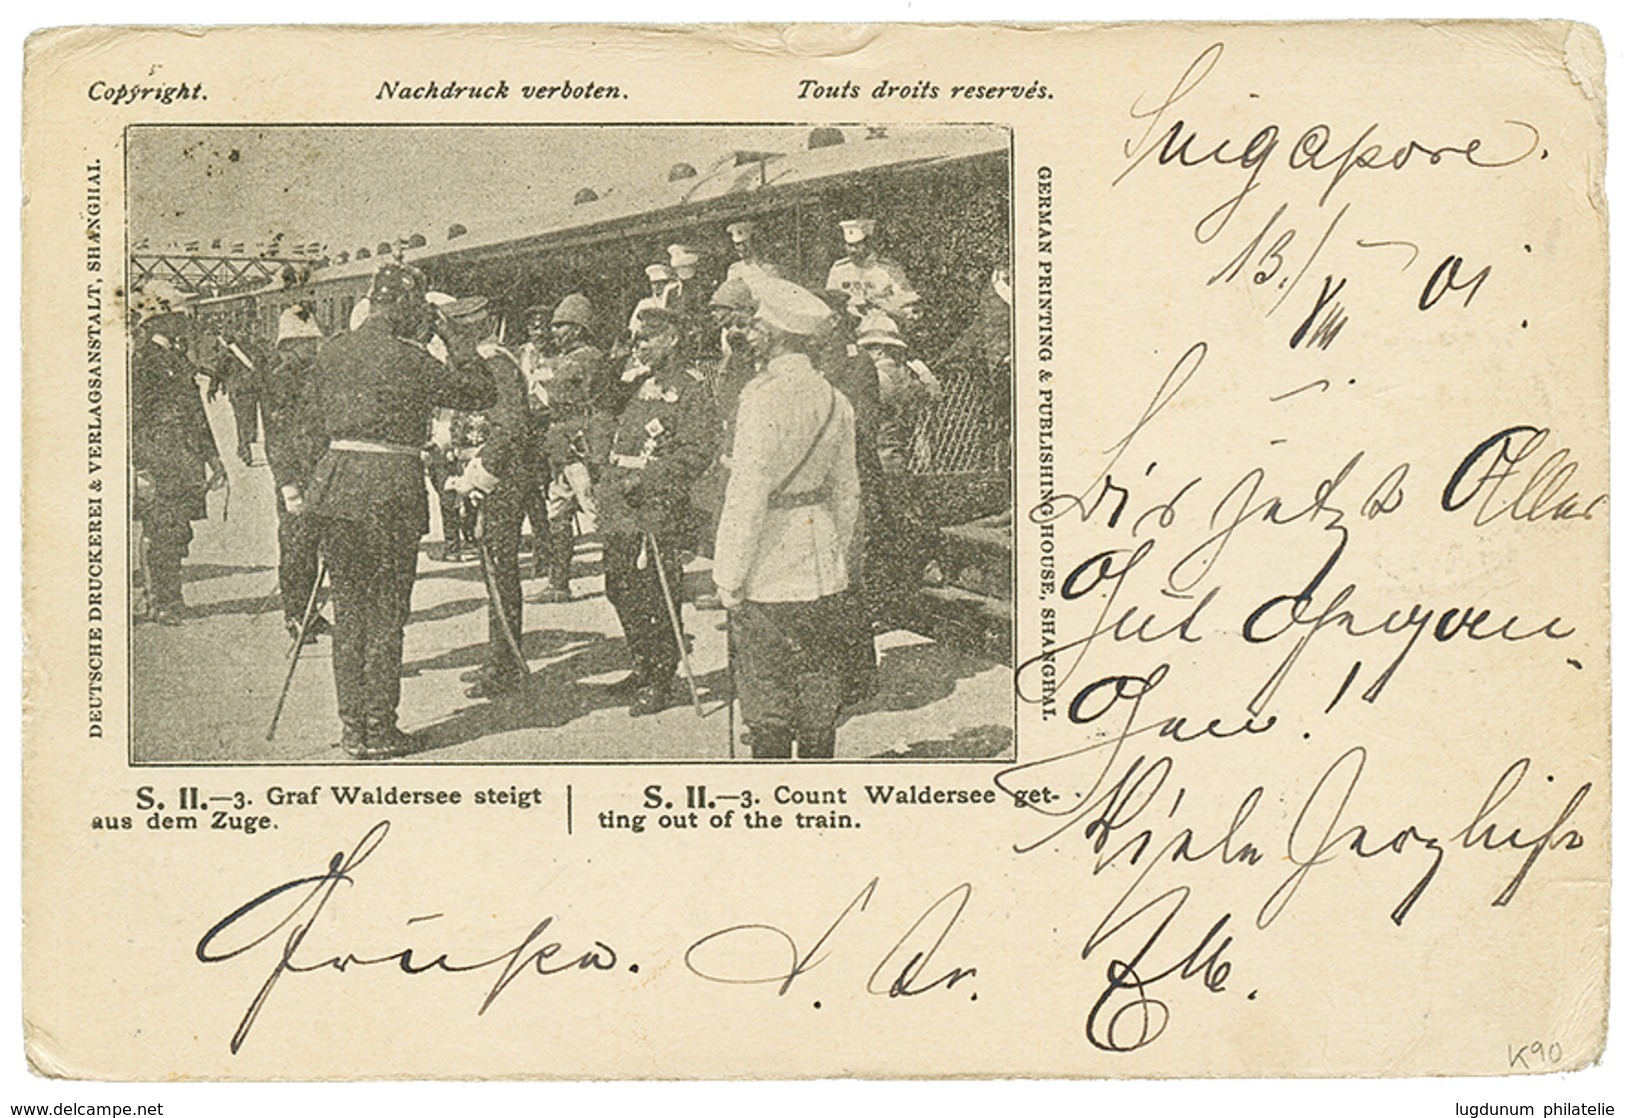 Copyright. Nachdruck verboten. Touts droits reservés.
DEUTSCHE DRUCKEREI & VERLAGSANSTALT, SHANGHAI.
GERMAN PRINTING & PUBLISHING HOUSE, SHANGHAI.
S. II.—3. Graf Waldersee steigt
aus dem Zuge.
S. II.—3. Count Waldersee get-
ting out of the train.
Singapore.
13./VIII 01.
Bis jetzt Alles
Gut
Viele herzliche
Grüße.
K90
www.delcampe.net
lugdunum philatelie